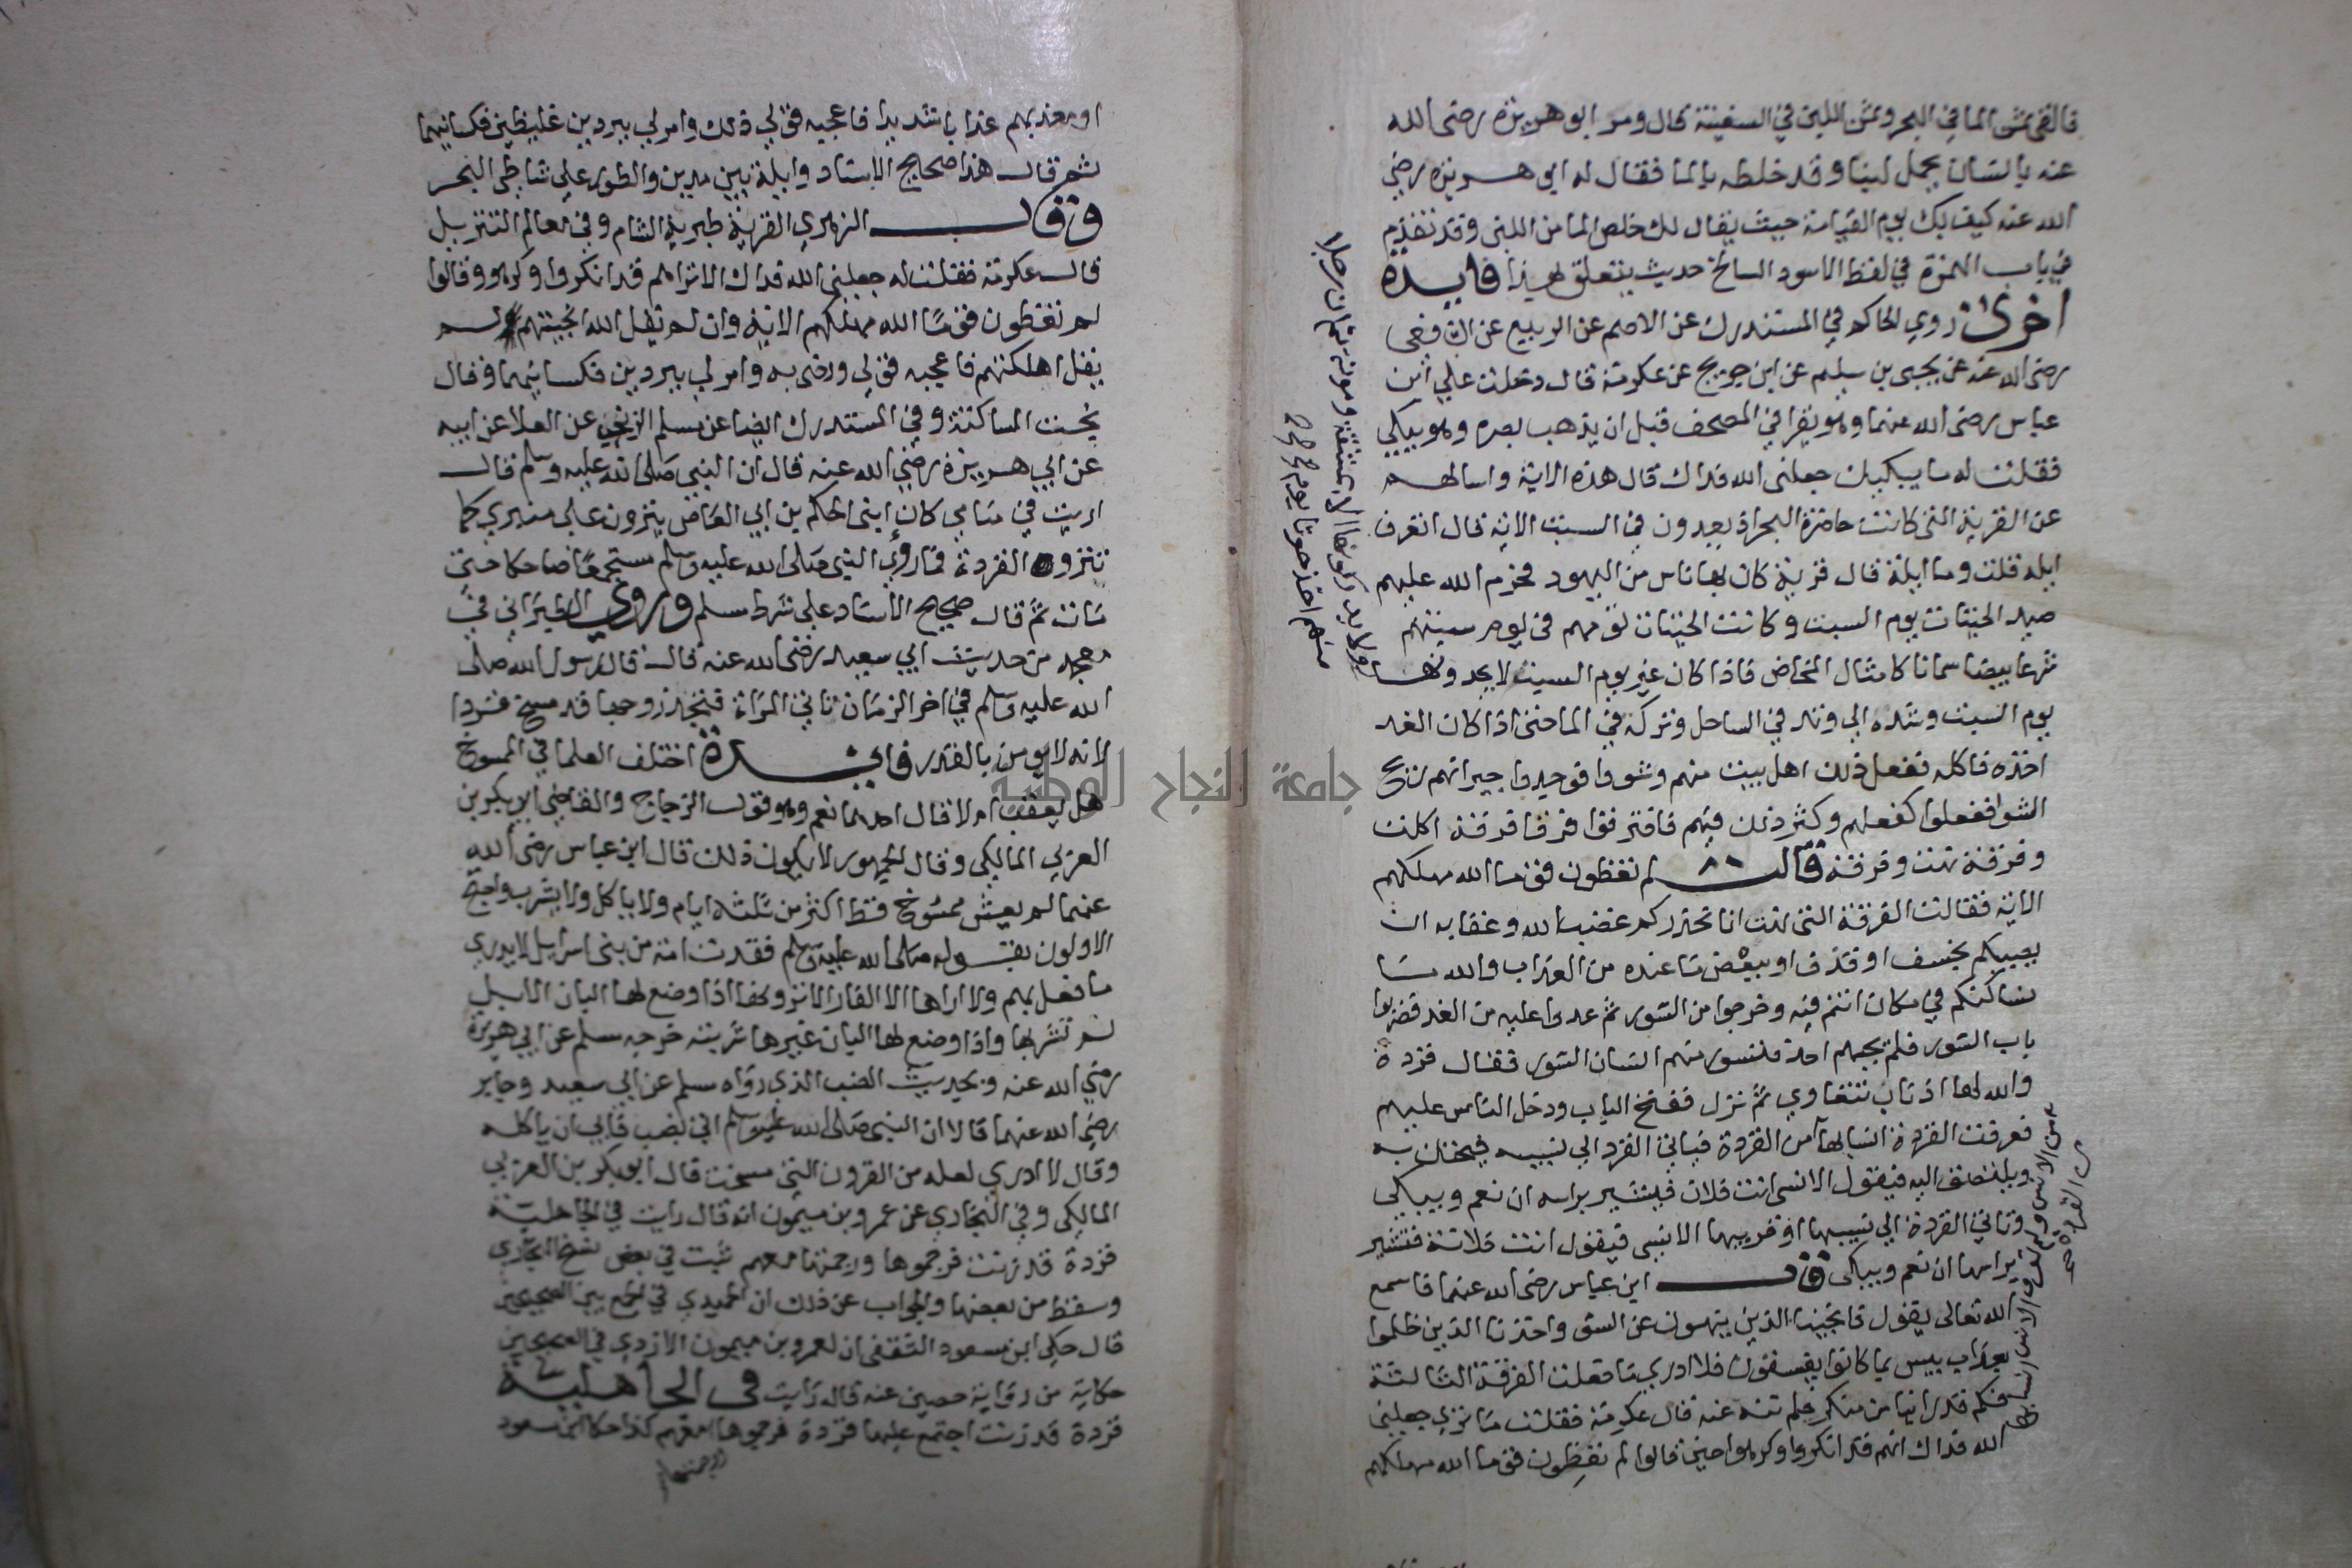 فالقى ثمن الما في البحر وثمن اللبن في السفينة قال ومر ابو هريرة رضي الله
عنه بانسان يحمل لبنا وقد خلطه بالما فقال له ابو هريرة رضي
الله عنه كيف بك يوم القيامة حيث يقال لك خلص الما من اللبن وقد تقدم
في باب الهمزة في لفظ الاسود السالخ حديث يتعلق بهذا فايدة
اخرى روي الحاكم في المستدرك عن الاصم عن الربيع عن الشافعى
رضى الله عنه عن يحيى بن سليم عن ابن جريج عن عكرمة قال دخلت على ابن
عباس رضى الله عنهما وهو يقرا في المصحف قبل ان يذهب بصره وهو يبكي
فقلت له ما يبكيك جعلنى الله فداك قال هذه الاية واسالهم
عن القرية التى كانت حاضرة البحر اذ يعدون في السبت الاية قال اتعرف
ايلة قلت وما ايلة قال قرية كان بها ناس من اليهود فحرم الله عليهم
صيد الحيتان يوم السبت وكانت الحيتان تاتيهم في يوم سبتهم
شرعا بيضا سمانا كامثال المخاض فاذا كان غير يوم السبت لا يجدونها
ولا يدركونها الا بمشقة ومونة ثم ان رجلا
منهم اخذ حوتا يوم
يوم السبت وشده الي وتد في الساحل وتركه في الما حتى اذا كان الغد
اخذه فاكله ففعل ذلك اهل بيت منهم وشووا فوجدوا جيرانهم ريح
الشوا ففعلوا كفعلهم وكثر ذلك فيهم فافترقوا فرقا فرقة اكلت
وفرقة نهت وفرقة قالت لم تعظون قوما الله مهلكهم
الاية فقالت الفرقة التى نهت انا نحذركم غضب الله وعقابه ان
يصيبكم بخسف او قذف او ببعض ما عنده من العذاب والله ما
نساكنكم في مكان انتم فيه وخرجوا من السور ثم غدوا عليه من الغد فضربوا
باب السور فلم يجبهم احد فتسور منهم انسان السور فقال قردة
والله لها اذناب تتعاوي ثم نزل ففتح الباب ودخل الناس عليهم
فعرفت القردة انسابها من
من الانس ولم تعرف الانس انسابها
من القردة فياتي القرد الي نسيبه فيحتك به
ويلتصق اليه فيقول الانسى انت فلان فيشير براسه ان نعم ويبكي
وتاتي القردة الي نسيبها او قريبها الانسى فيقول انت فلانة فتشير
براسها ان نعم ويبكى قال ابن عباس رضى الله عنهما فاسمع
الله تعالى يقول فانجينا الذين ينهون عن السو واخذنا الذين ظلموا
بعذاب بييس بما كانوا يفسقون فلا ادري ما فعلت الفرقة الثالثة
فكم قد راينا من منكر فلم ننه عنه قال عكرمة فقلت ما تري جعلنى
الله فداك انهم قد انكروا وكرهوا حين قالوا لم تعظون قوما الله مهلكهم
او معذبهم عذابا شديدا فاعجبه قولي ذلك وامر لي ببردين غليظين فكسانيهما
ثم قال هذا صحيح الاسناد وايلة بين مدين والطور على شاطى البحر
وقال الزهري القرية طبرية الشام وفي معالم التنزيل
قال عكرمة فقلت له جعلنى الله فداك الا تراهم قد انكروا وكرهوا وقالوا
لم تعظون قوما الله مهلكهم الاية وان لم يقل الله انجيتهم لم
يقل اهلكتهم فاعجبه قولي ورضى به وامر لي ببردين فكسانيهما وقال
نجت الساكتة وفي المستدرك ايضا عن مسلم الزنجي عن العلا عن ابيه
عن ابي هريرة رضي الله عنه قال ان النبي صلى الله عليه وسلم قال
اريت في منامي كان ابنى الحكم بن ابي العاص ينزون على منبري كما
تنزو القردة فما رؤي النبي صلى الله عليه وسلم مستجمعا ضاحكا حتى
مات ثم قال صحيح الاسناد على شرط مسلم وروي الطبراني في
معجمه من حديث ابي سعيد رضى الله عنه قال قال رسول الله صلى
الله عليه وسلم في اخر الزمان تاتي المراة فتجد زوجها قد مسخ قردا
لانه لا يومن بالقدر فايدة اختلف العلما في الممسوخ
هل يعقب ام لا قال احدهما نعم وهو قول الزجاج والقاضي ابي بكر بن
العربي المالكي وقال الجمهور لا يكون ذلك قال ابن عباس رضى الله
عنهما لم يعش ممسوخ قط اكثر من ثلثة ايام ولا ياكل ولا يشرب واحتج
الاولون بقوله صلى الله عليه وسلم فقدت امة من بني اسرايل لا يدري
ما فعل بهم ولا اراها الا الفار الا ترونها اذا وضع لها البان الابل
لم تشربها واذا وضع لها البان غيرها شربته خرجه مسلم عن ابي هريرة
رضي الله عنه وبحديث الضب الذي رواه مسلم عن ابي سعيد وجابر
رضي الله عنهما قالا ان النبى صلى الله عليه وسلم اتي بضب فابي ان ياكله
وقال لا ادري لعله من القرون التى مسخت قال ابو بكر بن العربي
المالكي وفي البخاري عن عمرو بن ميمون انه قال رايت في الجاهلية
قردة قد زنت فرجموها ورجمتها معهم ثبت في بعض نسخ البخاري
وسقط من بعضها والجواب عن ذلك ان الحميدي في الجمع بين الصحيحين
قال حكى ابن مسعود الثقفى ان لعمرو بن ميمون الازدي في الصحيحين
حكاية من رواية حصين عنه قال رايت في الجاهلية
قردة قد زنت اجتمع عليها قردة فرجموها معهم كذا حكا ابن مسعود
ورجمتها
جامعة النجاح الوطنية